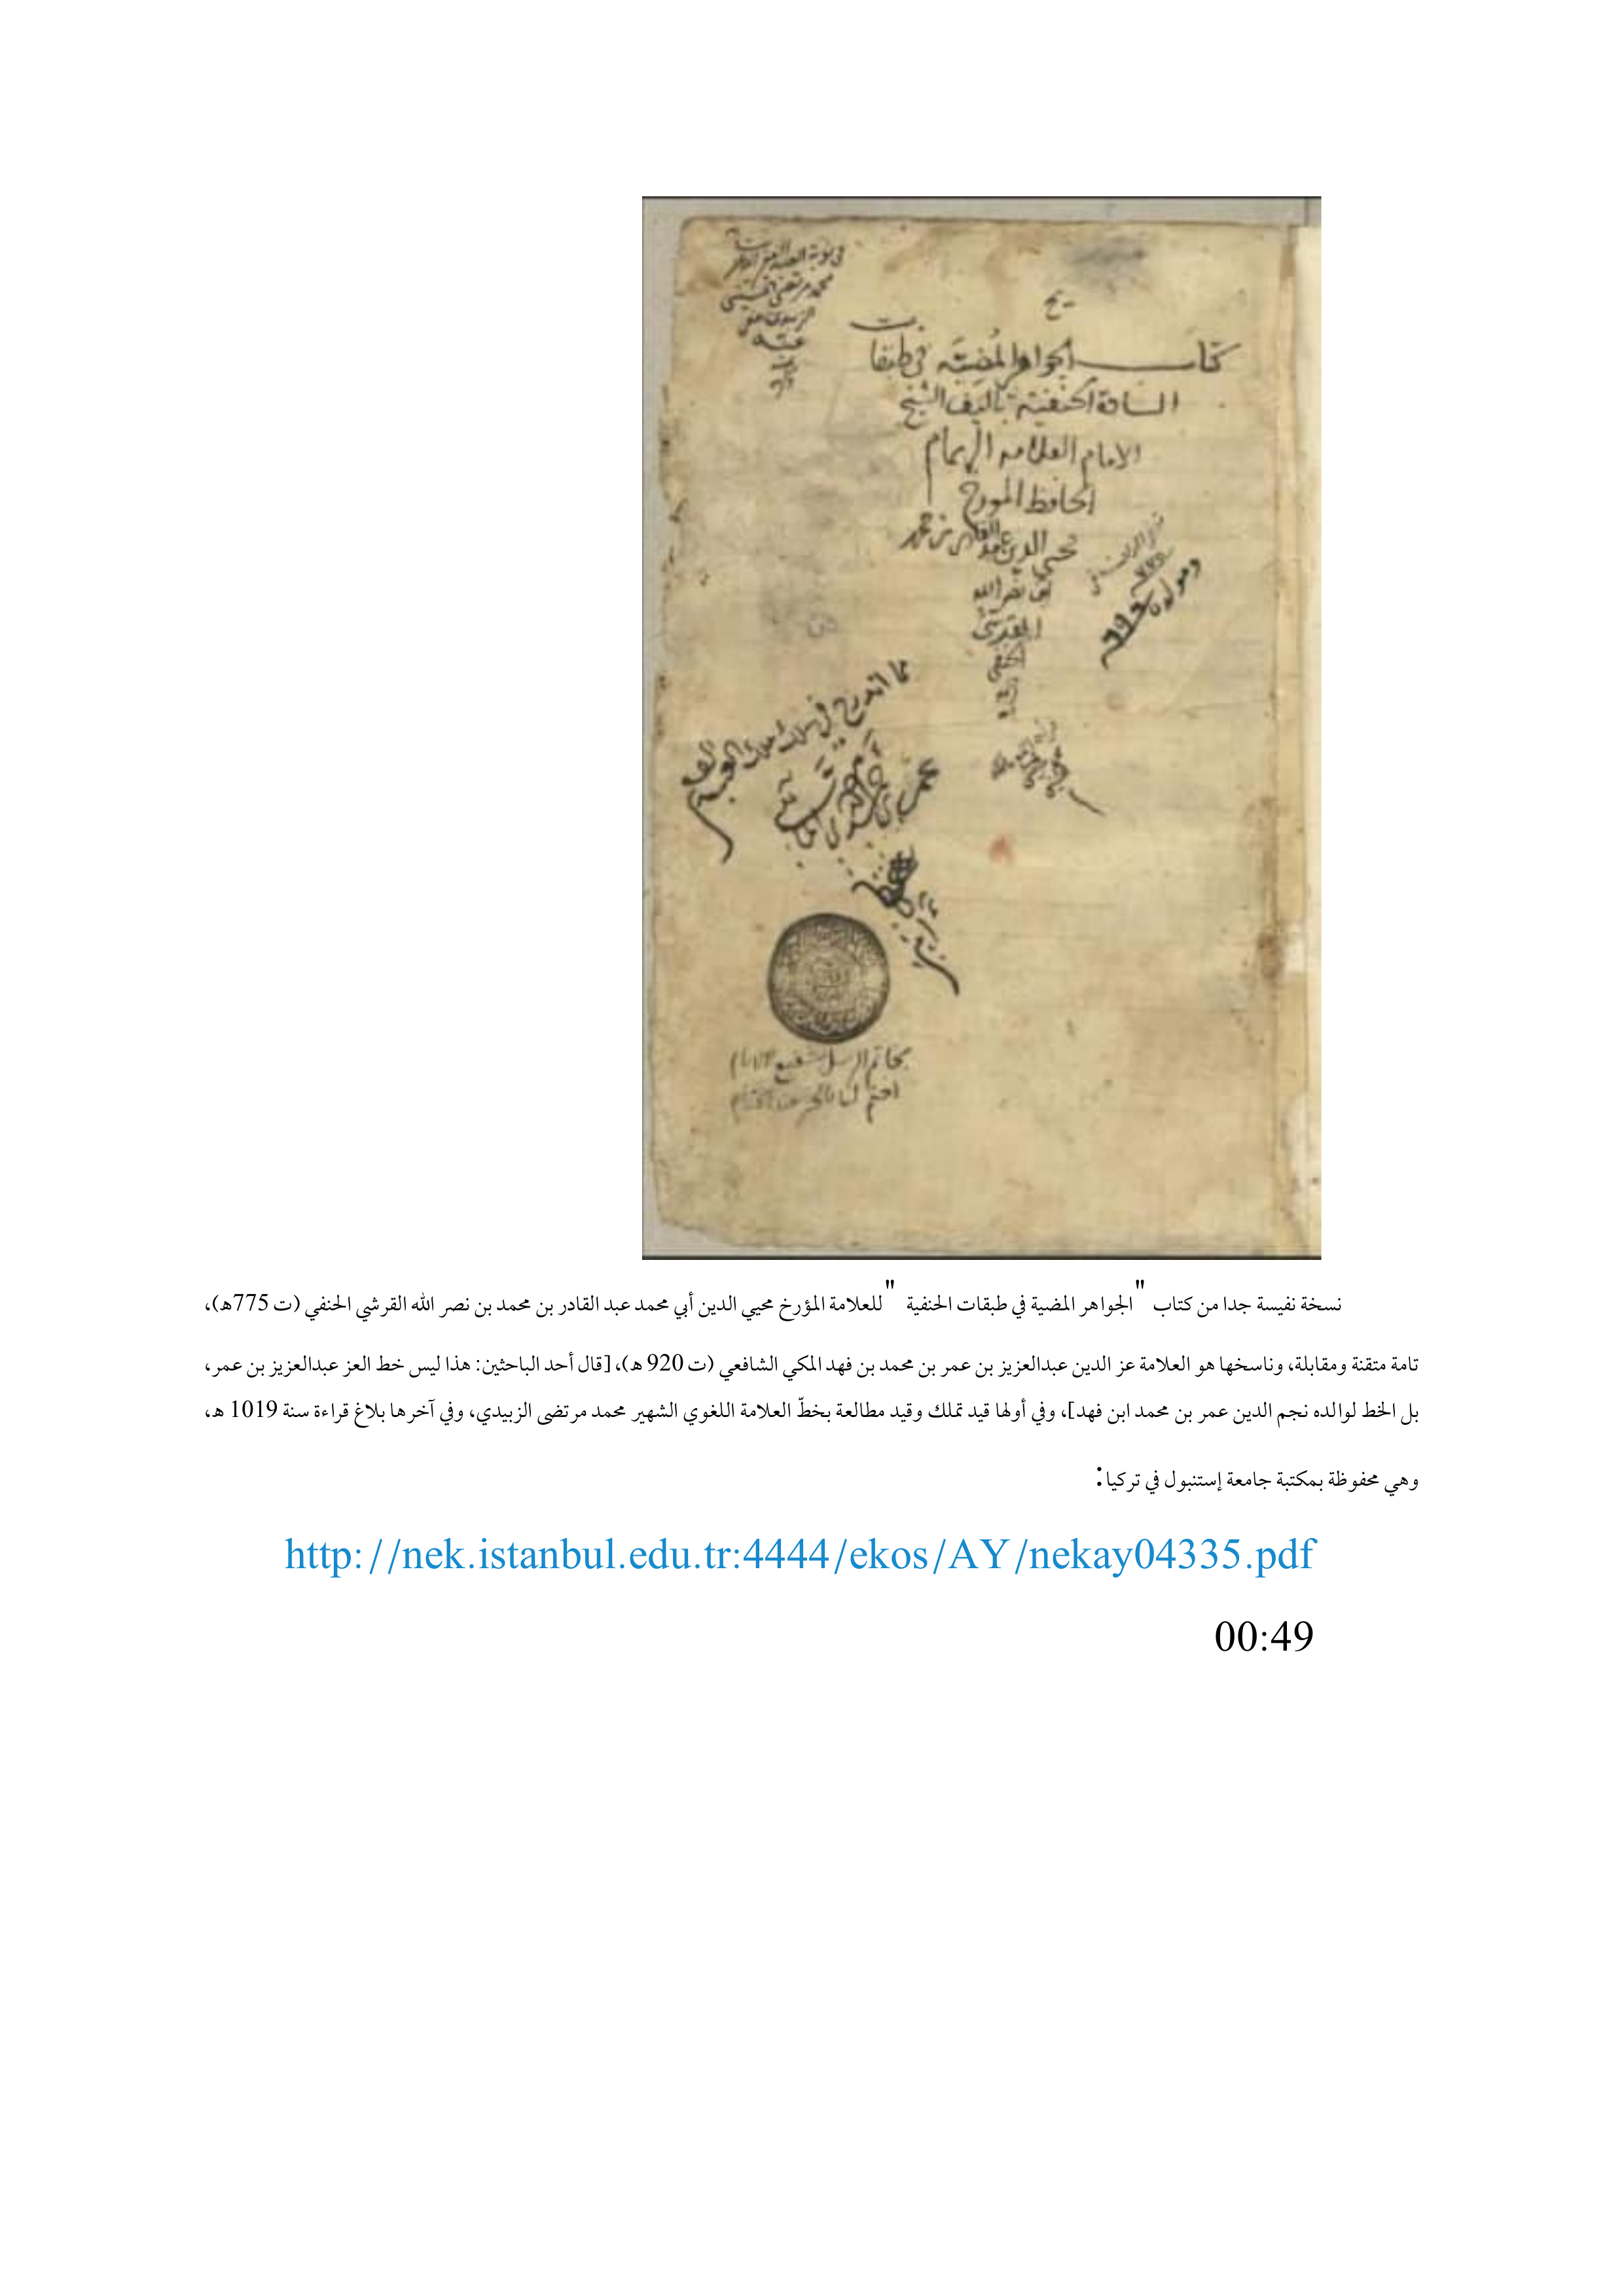 في نوبة العبد الفقير
محمد مرتضى الحسيني
الزبيدي عفي
عنه
كتاب الجواهر المضية في طبقات
السادة الحنفية تأليف الشيخ
الامام العلامه الهمام
الحافظ المورخ
محيي الدين عبد القادر بن محمد
نصر الله
القرشي
الحنفي
ومولده
مما اندرج في سلك ملك
عمر
بخاتم الرسل شفيع الانام
اختم لنا بالخير عند الختام
نسخة نفيسة جدا من كتاب "الجواهر المضية في طبقات الحنفية "للعلامة المؤرخ محيي الدين أبي محمد عبد القادر بن محمد بن نصر الله القرشي الحنفي (ت 775هـ)،
تامة متقنة ومقابلة، وناسخها هو العلامة عز الدين عبدالعزيز بن عمر بن محمد بن فهد المكي الشافعي (ت 920 هـ)، [قال أحد الباحثين: هذا ليس خط العز عبدالعزيز بن عمر،
بل الخط لوالده نجم الدين عمر بن محمد ابن فهد]، وفي أولها قيد تملك وقيد مطالعة بخطّ العلامة اللغوي الشهير محمد مرتضى الزبيدي، وفي آخرها بلاغ قراءة سنة 1019 هـ،
وهي محفوظة بمكتبة جامعة إستنبول في تركيا:
http://nek.istanbul.edu.tr:4444/ekos/AY/nekay04335.pdf
00:49